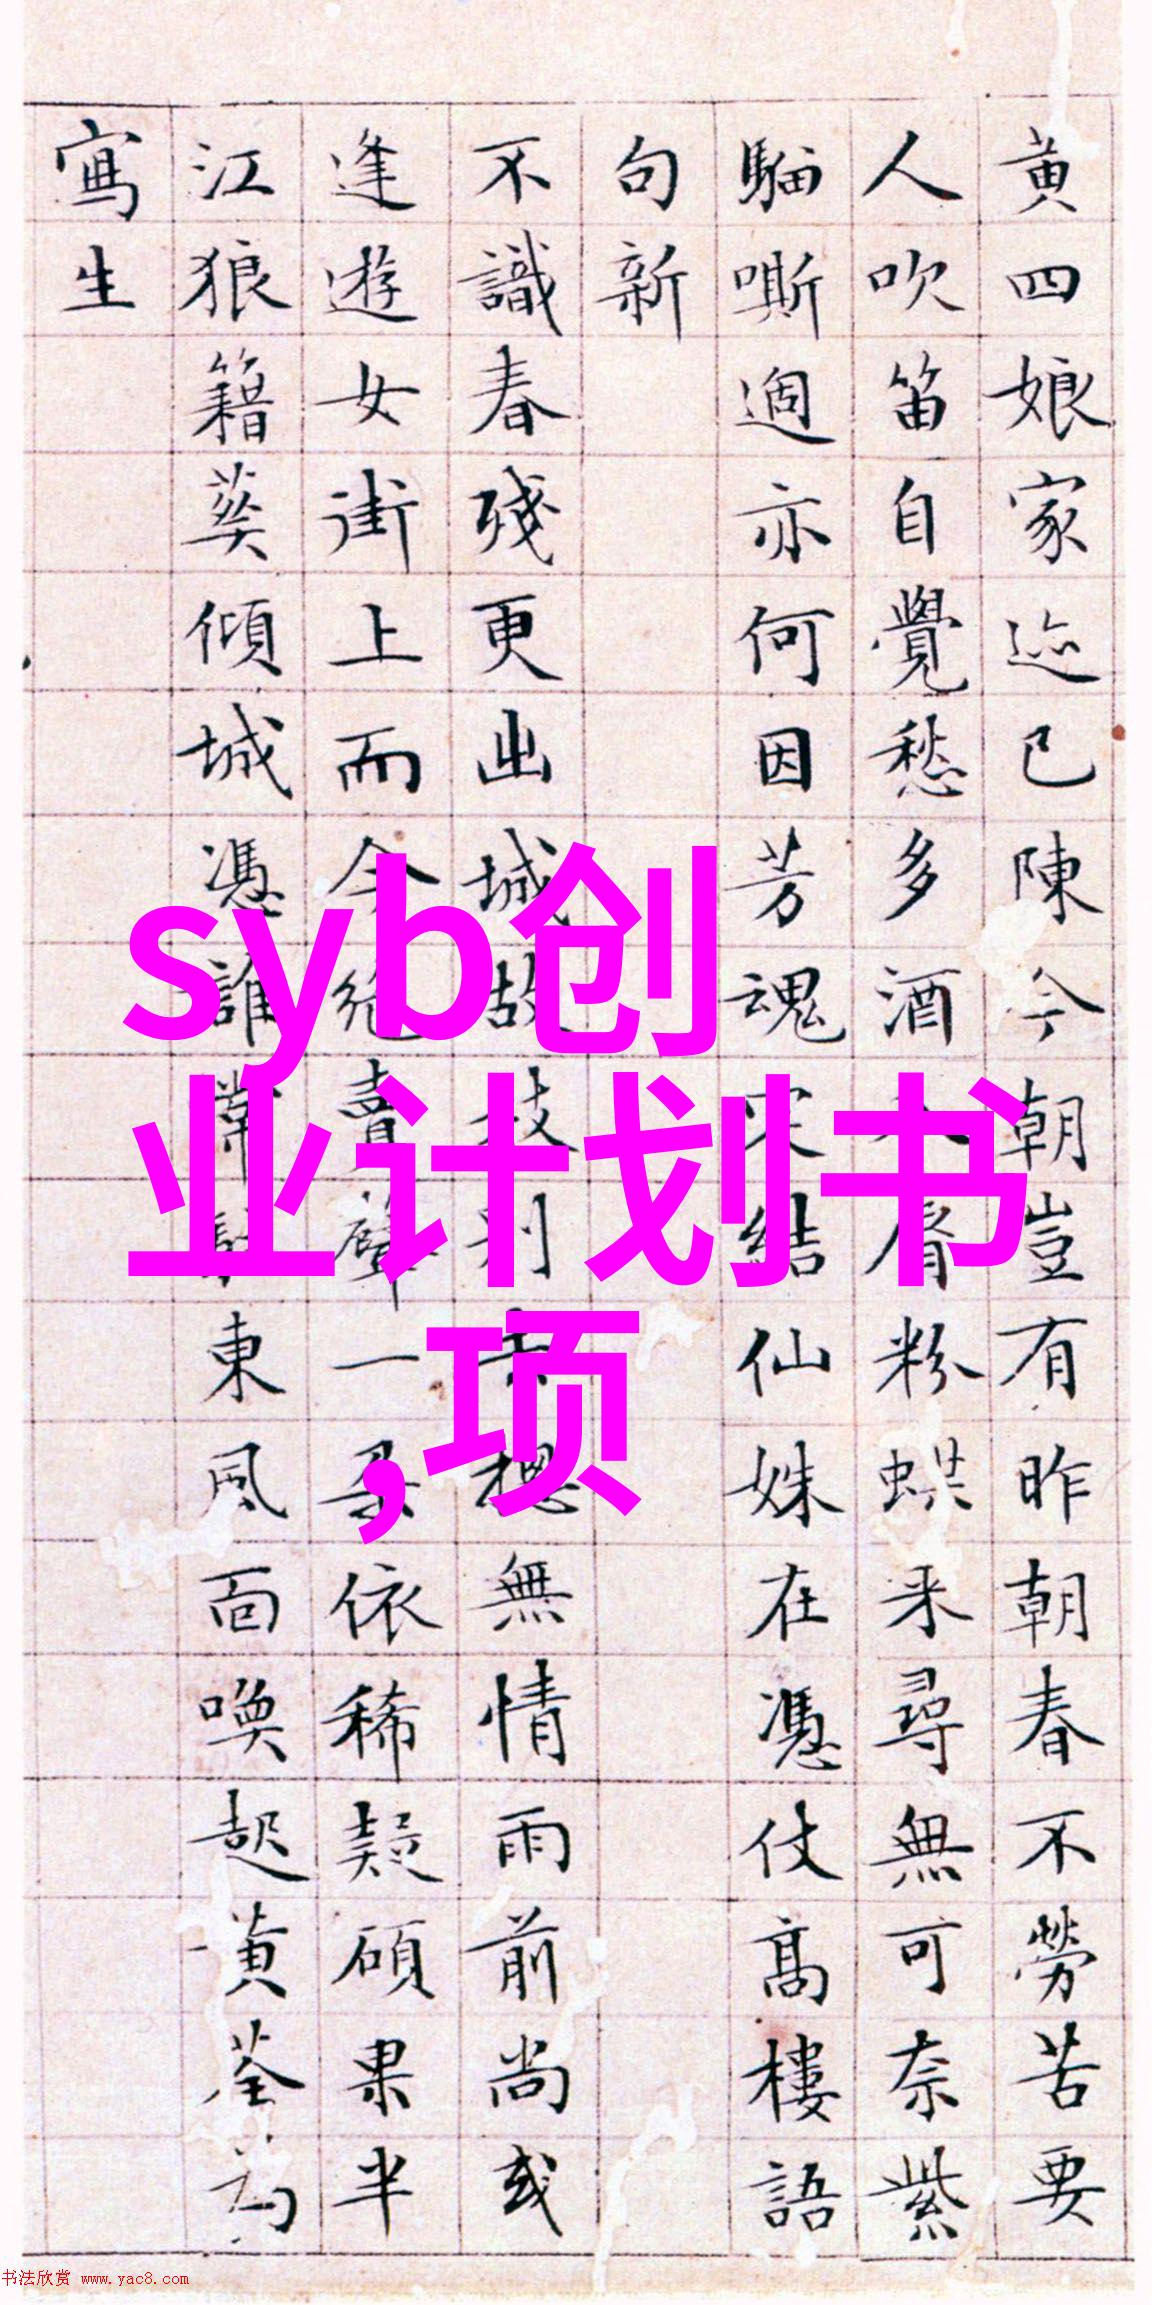 黄四娘家迹已陳今朝豈有昨朝春不勞苦要
人吹笛自覺愁多酒脣粉蝶来尋無可奈紫
騮嘶過亦何因芳魂結仙姝在憑仗高樓語
句新
不識春殘更出城故枝別總無情雨前尚或
逢遊女街上而今絶賣聲一朵依稀疑碩果半
江狼籍葵傾城憑誰東風面喚起黄荃為
寫生
syb创
业计划书
,项
书法欣赏 www.yac8.com